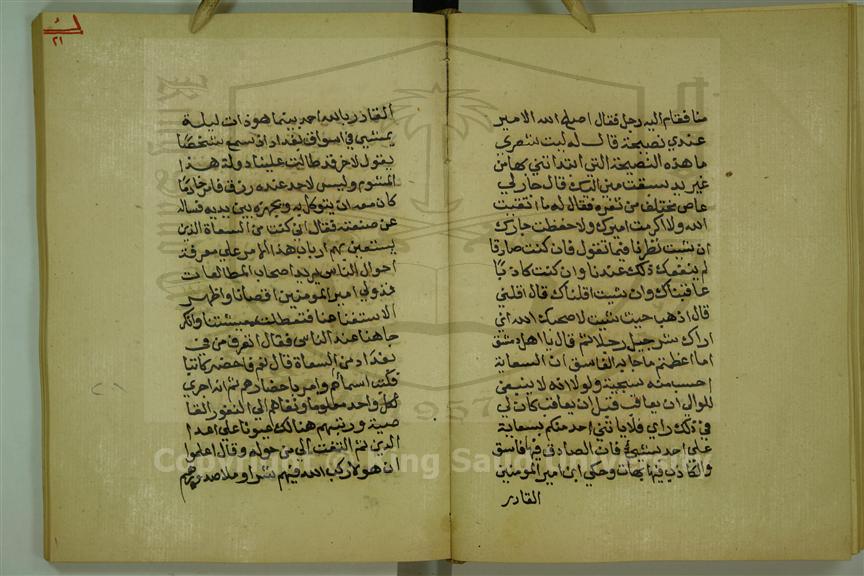 منا فقام اليه رجل فقال اصلح الله الامير
عندي نصيحة قال له ليت شعري
ما هذه النصيحة التي ابتداتني بها من
غير يد سبقت مني اليك قال جار لي
عاص متخلف من ثغره فقال له ما اتقيت
الله ولا اكرمت اميرك ولا حفظت جارك
ان شيت نظرنا فيما تقول فان كنت صادقا
لم ينفعك ذلك عندنا وان كنت كاذبا
عاقبناك وان شيت اقلناك قال اقلني
قال اذهب حيث شيت لا صحبك الله اني
اراك شر جيل رجلا ثم قال يا اهل دمشق
اما اعظمتم ما جا به الفاسق ان السعاية
احسب منه سجية ولولا انه لا ينبغي
للوالي ان يعاقب قبل ان يعاتب كان لي
في ذلك راي فلا ياتني احد منكم بسعاية
علي احد بشيء فان الصادق فيها فاسق
والكاذب فيها بهات وحكي ان امير المومنين
القادر
٢١
القادر بالله احمد بينما هو ذات ليلة
يمشي في اسواق بغداد اذ سمع شخصا
يقول لاخر قد طالت علينا دولة هذا
المشوم وليس لاحد عنده رزق فامر خادما
كان معه ان يتوكل به ويحضره بين يديه فساله
عن صنعته فقال اني كنت من السعاة الذين
يستعين بهم ارباب هذا الامر علي معرفة
احوال الناس يريد اصحاب المطالعات
فمذ ولي امير المومنين اقصانا واظهر
الاستغنا عنا فتعطلت معيشتنا وانكسر
جاهنا عند الناس فقال اتعرف من في
بغداد من السعاة قال نعم فاحضر كاتبا
فكتب اسمآهم وامر باحضارهم ثم انه اجري
لكل واحد معلوما ونفاهم الي الثغور القا
صية ورتبهم هنالك عيونا علي اعدا
الدين ثم التفت الي من حوله وقال اعلموا
ان هولا ركب الله فيهم شرا وملا صدورهم
Copyright © King Saud University
1957